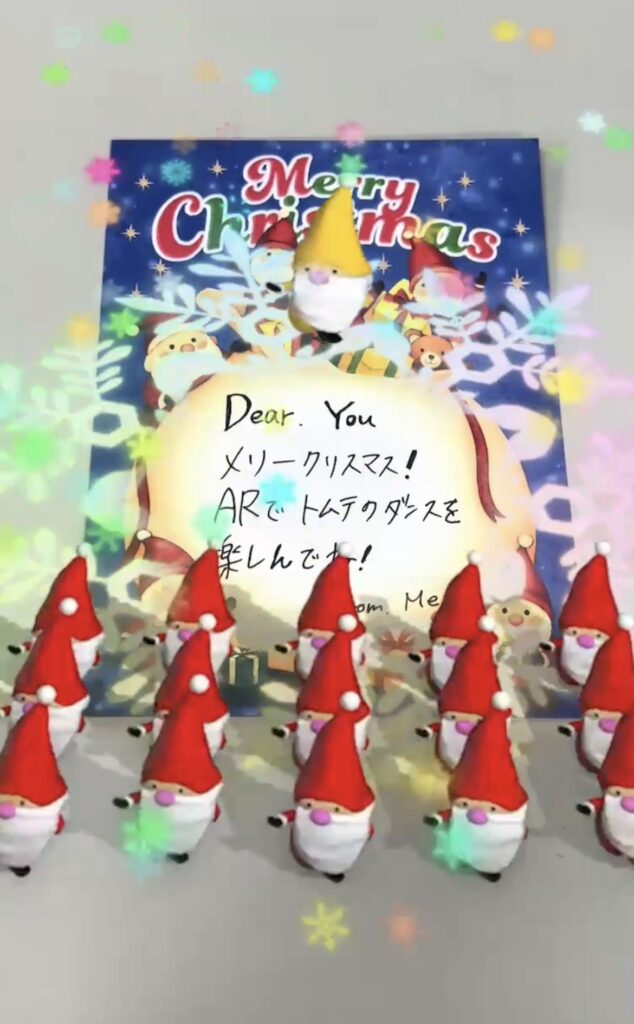 Merry
Christmas
Dear. You
メリークリスマス!
ARで トムテのダンスを
楽しんでね!
Me